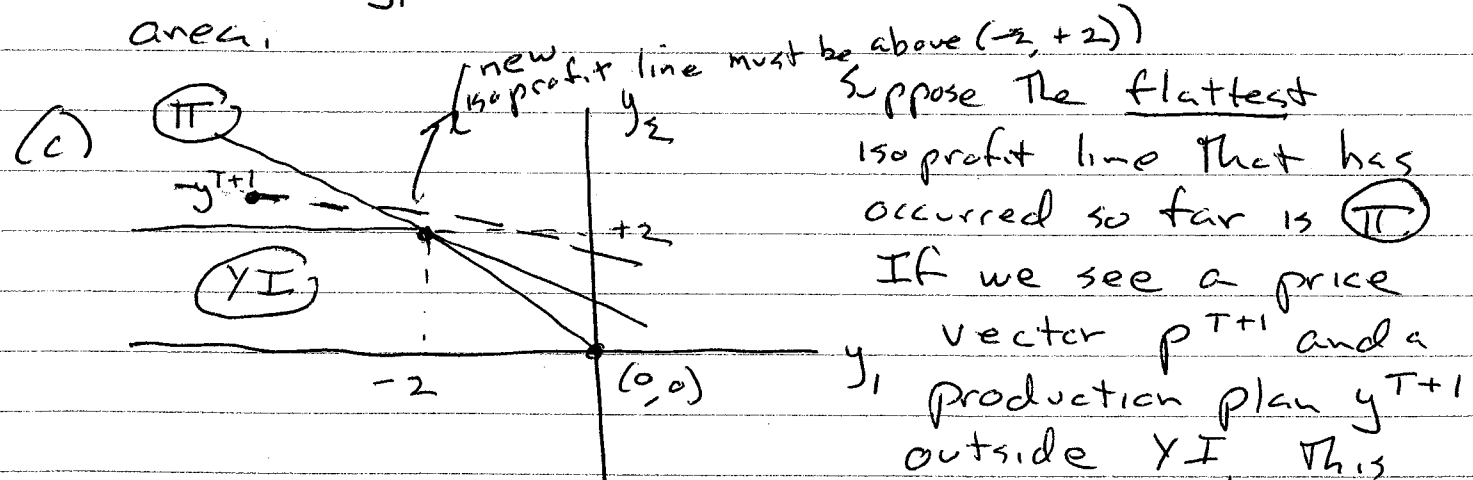 area.
new
isoprofit line must be above (-2, +2))
(c)
π
y₂
Suppose the flattest
isoprofit line that has
occurred so far is π
y^T+1
+2
If we see a price
YI
vector p^T+1 and a
-2
(0,0)
y₁
production plan y^T+1
outside YI, this